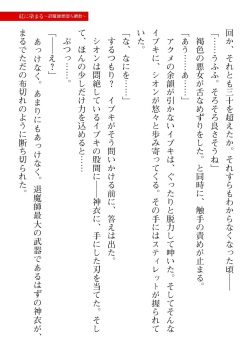 紅に染まる
回か、それとも三十を超えたか。それすらもわからなくなった頃、
「……うふふ。そろそろ良さそうね」
褐色の悪女が舌なめずりをした。と同時に、触手の責めが止まる。
「あう……あ……」
アクメの余韻が引かないイブキは、ぐったりと脱力して呻いた。そしてそんな
イブキに、シオンが悠々と歩み寄ってくる。その手にはスティレットが握られて
いた。
「な、なにを……」
するつもり？　イブキがそう問いかける前に、答えは出た。
シオンは悶絶しているイブキの股間に――神衣に、手にした刃を当てた。そし
て、ほんの少しだけ力を込めると……。
ぷつっ……。
「――え？」
あっけなく。あまりにもあっけなく。退魔師最大の武器であるはずの神衣が、
まるでただの布切れのように断ち切られた。